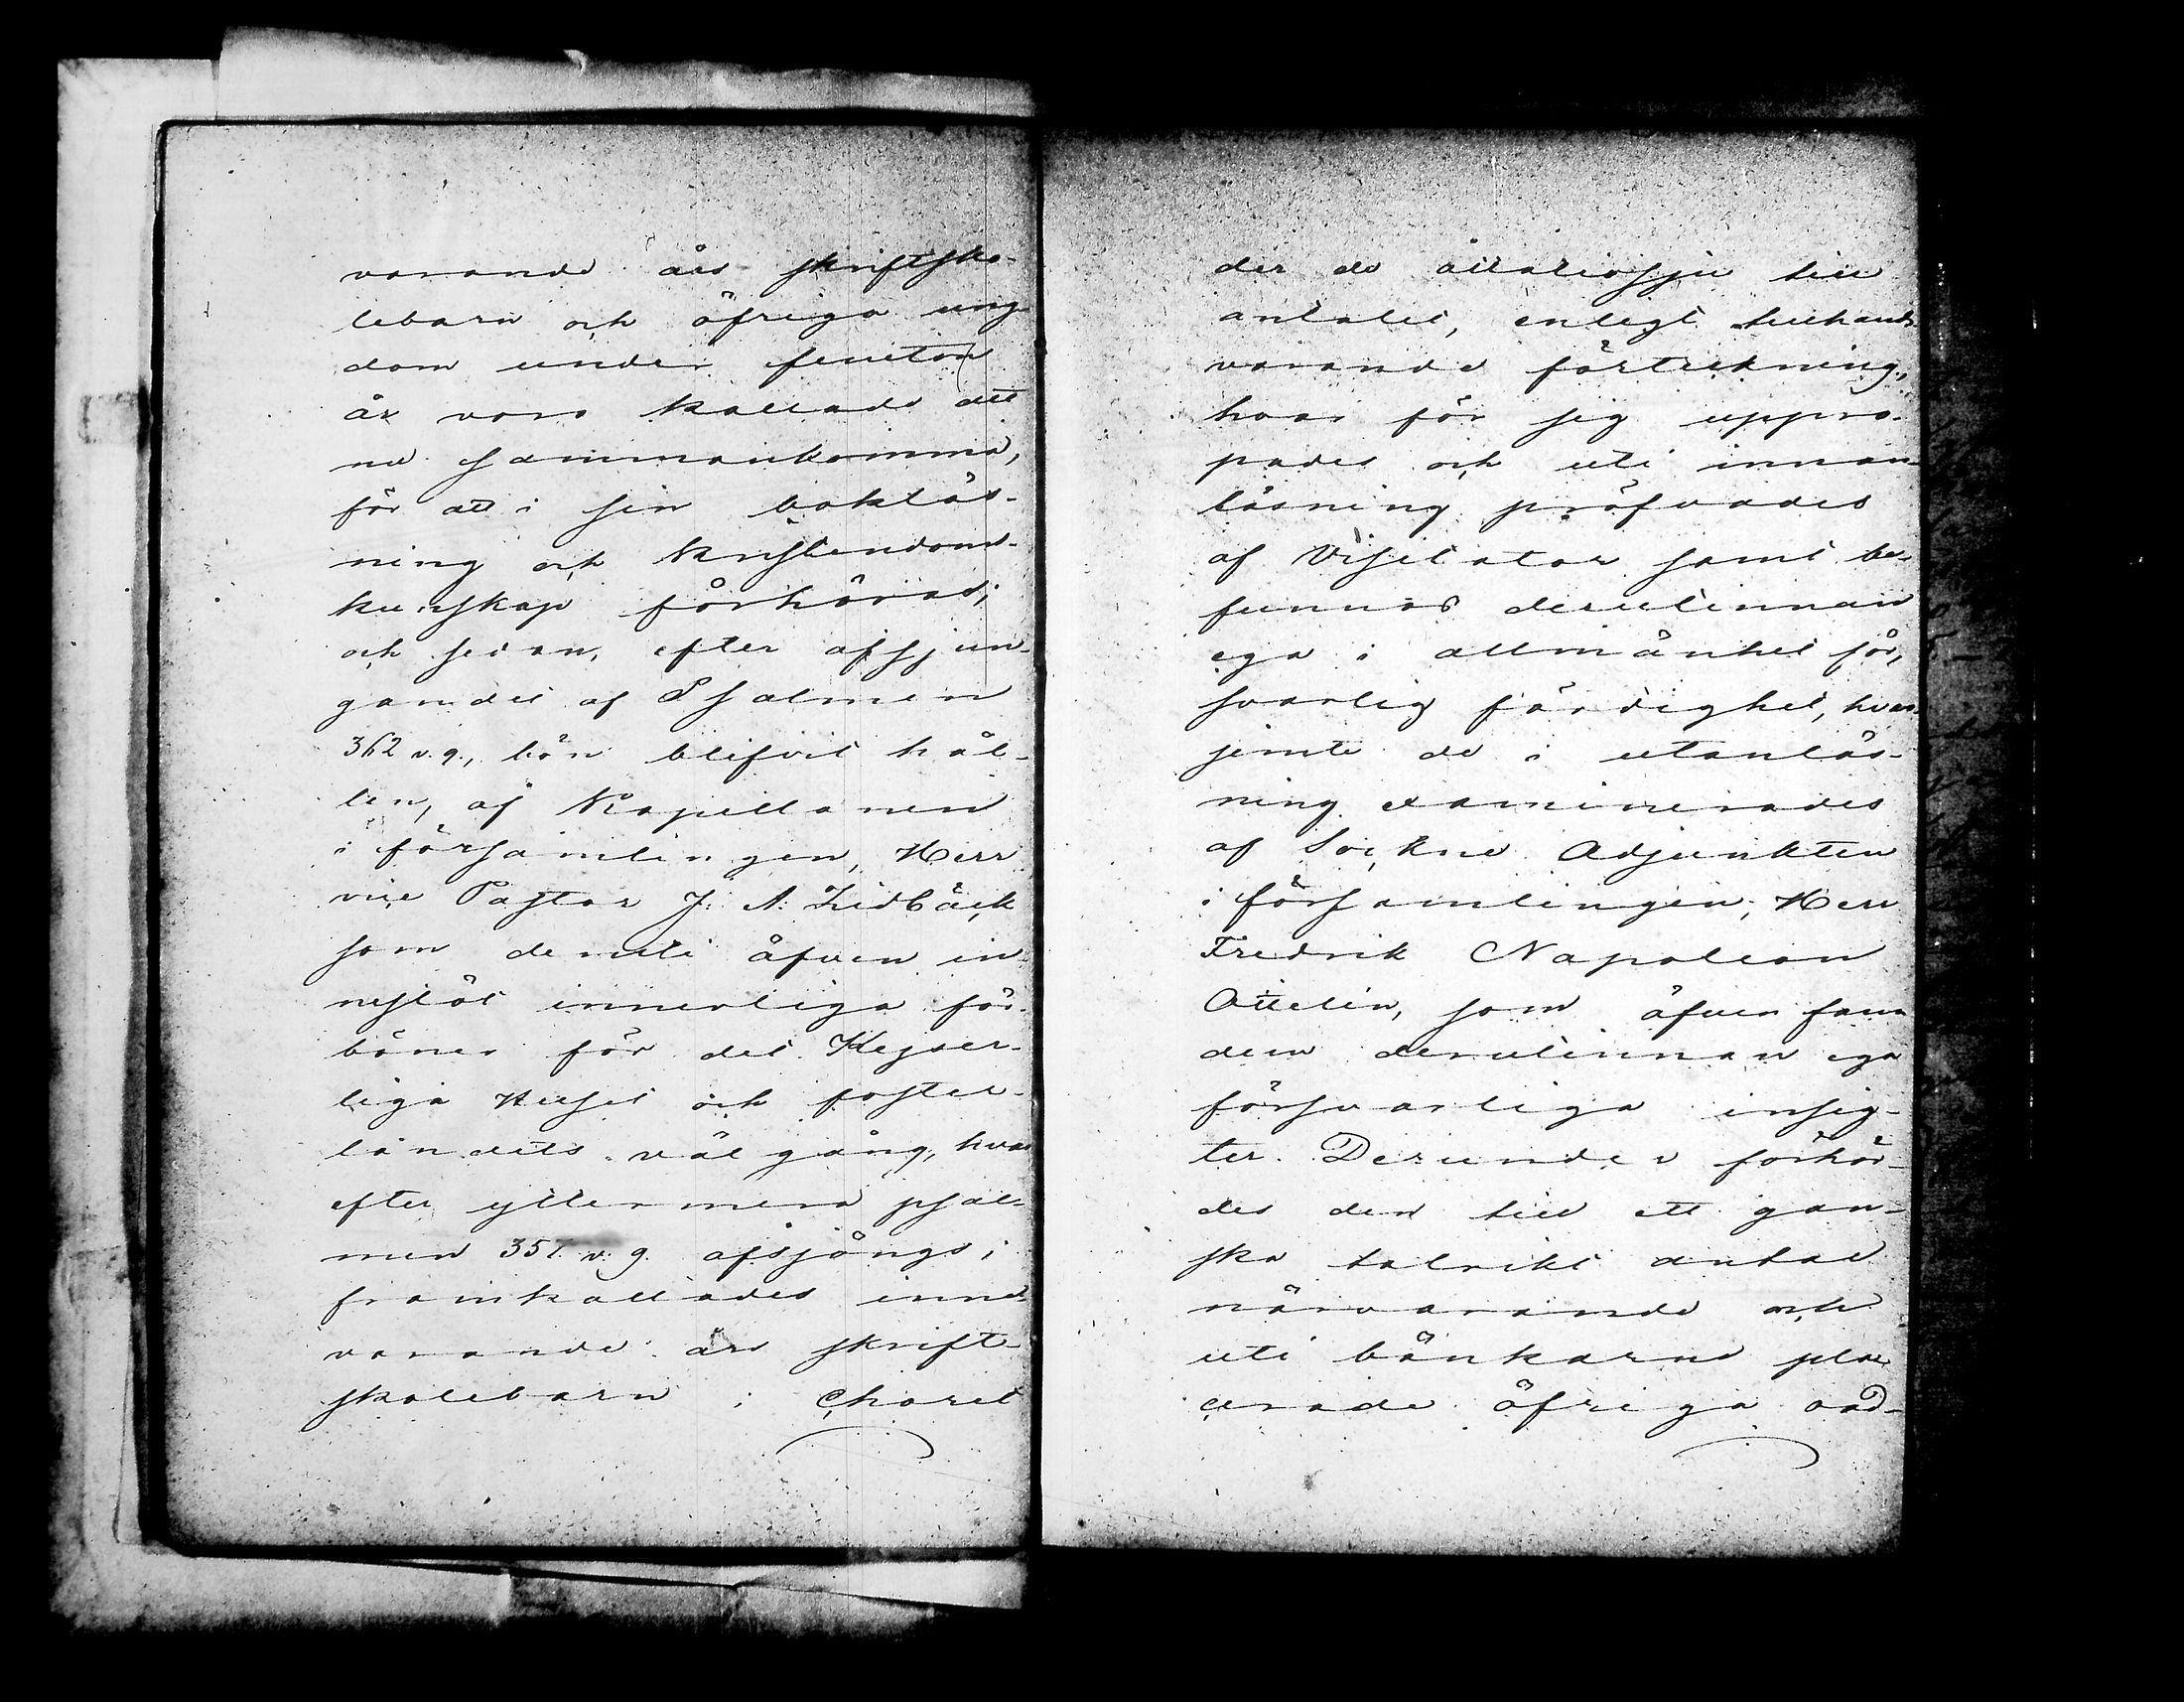 varande års skriftsko-
lebarn och öfriga ung-
dom under femton
år voro kallade att
nu sammankomma,
för att i sin bokläs-
ning och kristendoms-
kunskap förhöras;
och sedan, efter afsjun-
gandet af Psalmen
362 v. 9., bön blifvit hål-
len, af Kapellanen
i församlingen, Herr
vice Pastor J. A. Lidbäck
som deruti äfven in-
neslöt innerliga för-
böner för det Kejser-
liga Huset och foster-
landets välgång, hvar-
efter yttermera psal-
men 357. v. 9. afsjöngs;
framkallades inne-
varande års skrift-
skolebarn i Choret
der de åttatiosju till
antalet, enligt tillhands
varande förtekning,
hvar för sig uppro-
pades och uti innan-
läsning pröfvades
af Visitator samt be-
funnos derutinnan
ega i allmänhet för-
svarlig färdighet, hvar-
jemte de i utanläs-
ning examinerades
af Sockne Adjunkten
i församlingen, Herr
Fredrik Napoleon
Attelin, som äfven fann
dem derutinnan ega
försvarliga insig-
ter. Derunder förhör-
des den till ett gan-
ska talrikt antal
närvarande och
uti bänkarne pla-
cerade öfriga oad-